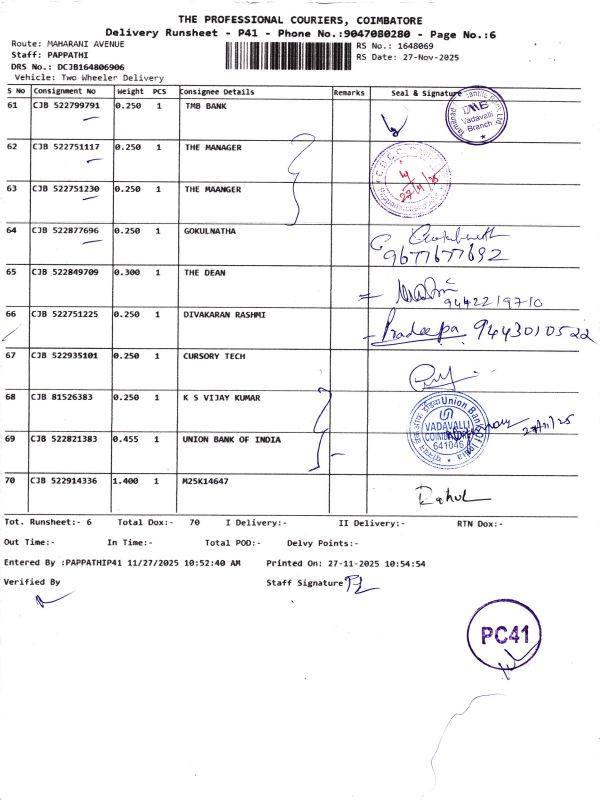 THE PROFESSIONAL COURIERS, COIMBATORE
Delivery Runsheet - P41 - Phone No.:9047080280 - Page No.:6
Route: MAHARANI AVENUE
RS No.: 1648069
Staff: PAPPATHI
RS Date: 27-Nov-2025
DRS No.: DCJB164806906
Vehicle: Two Wheeler Delivery
S No Consignment No Weight PCS Consignee Details Remarks Seal & Signature
61 CJB 522799791 0.250 1 TMB BANK
TMB
Vadavalli
Branch
62 CJB 522751117 0.250 1 THE MANAGER
63 CJB 522751230 0.250 1 THE MAANGER
27/11/25
64 CJB 522877696 0.250 1 GOKULNATHA
9677677692
65 CJB 522849709 0.300 1 THE DEAN
9442219710
66 CJB 522751225 0.250 1 DIVAKARAN RASHMI
Pradeepa 9443010522
67 CJB 522935101 0.250 1 CURSORY TECH
68 CJB 81526383 0.250 1 K S VIJAY KUMAR
69 CJB 522821383 0.455 1 UNION BANK OF INDIA
Union Bank of India
VADAVALLI
COIMBATORE
641046
27/11/25
70 CJB 522914336 1.400 1 M25K14647
Rahul
Tot. Runsheet:- 6 Total Dox:- 70 I Delivery:- II Delivery:- RTN Dox:-
Out Time:- In Time:- Total POD:- Delvy Points:-
Entered By :PAPPATHIP41 11/27/2025 10:52:40 AM Printed On: 27-11-2025 10:54:54
Verified By Staff Signature
PC41